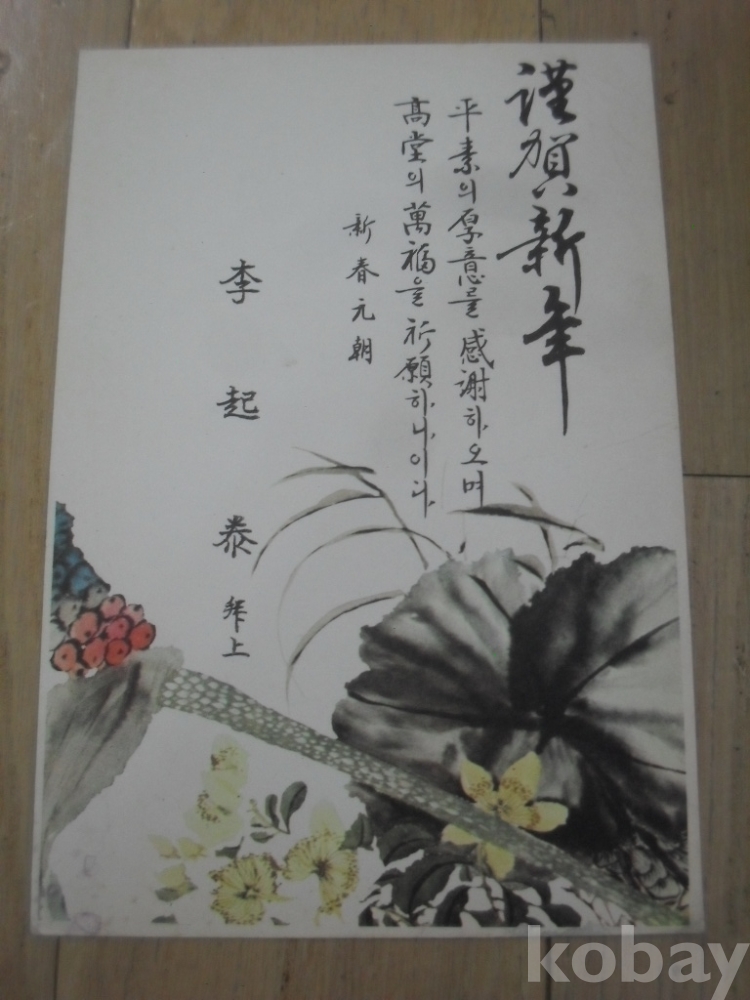 謹賀新年
平素의 厚意를 感謝하오며
高堂의 萬福을 祈願하나이다.
新春元朝
李起泰 拜上
kobay